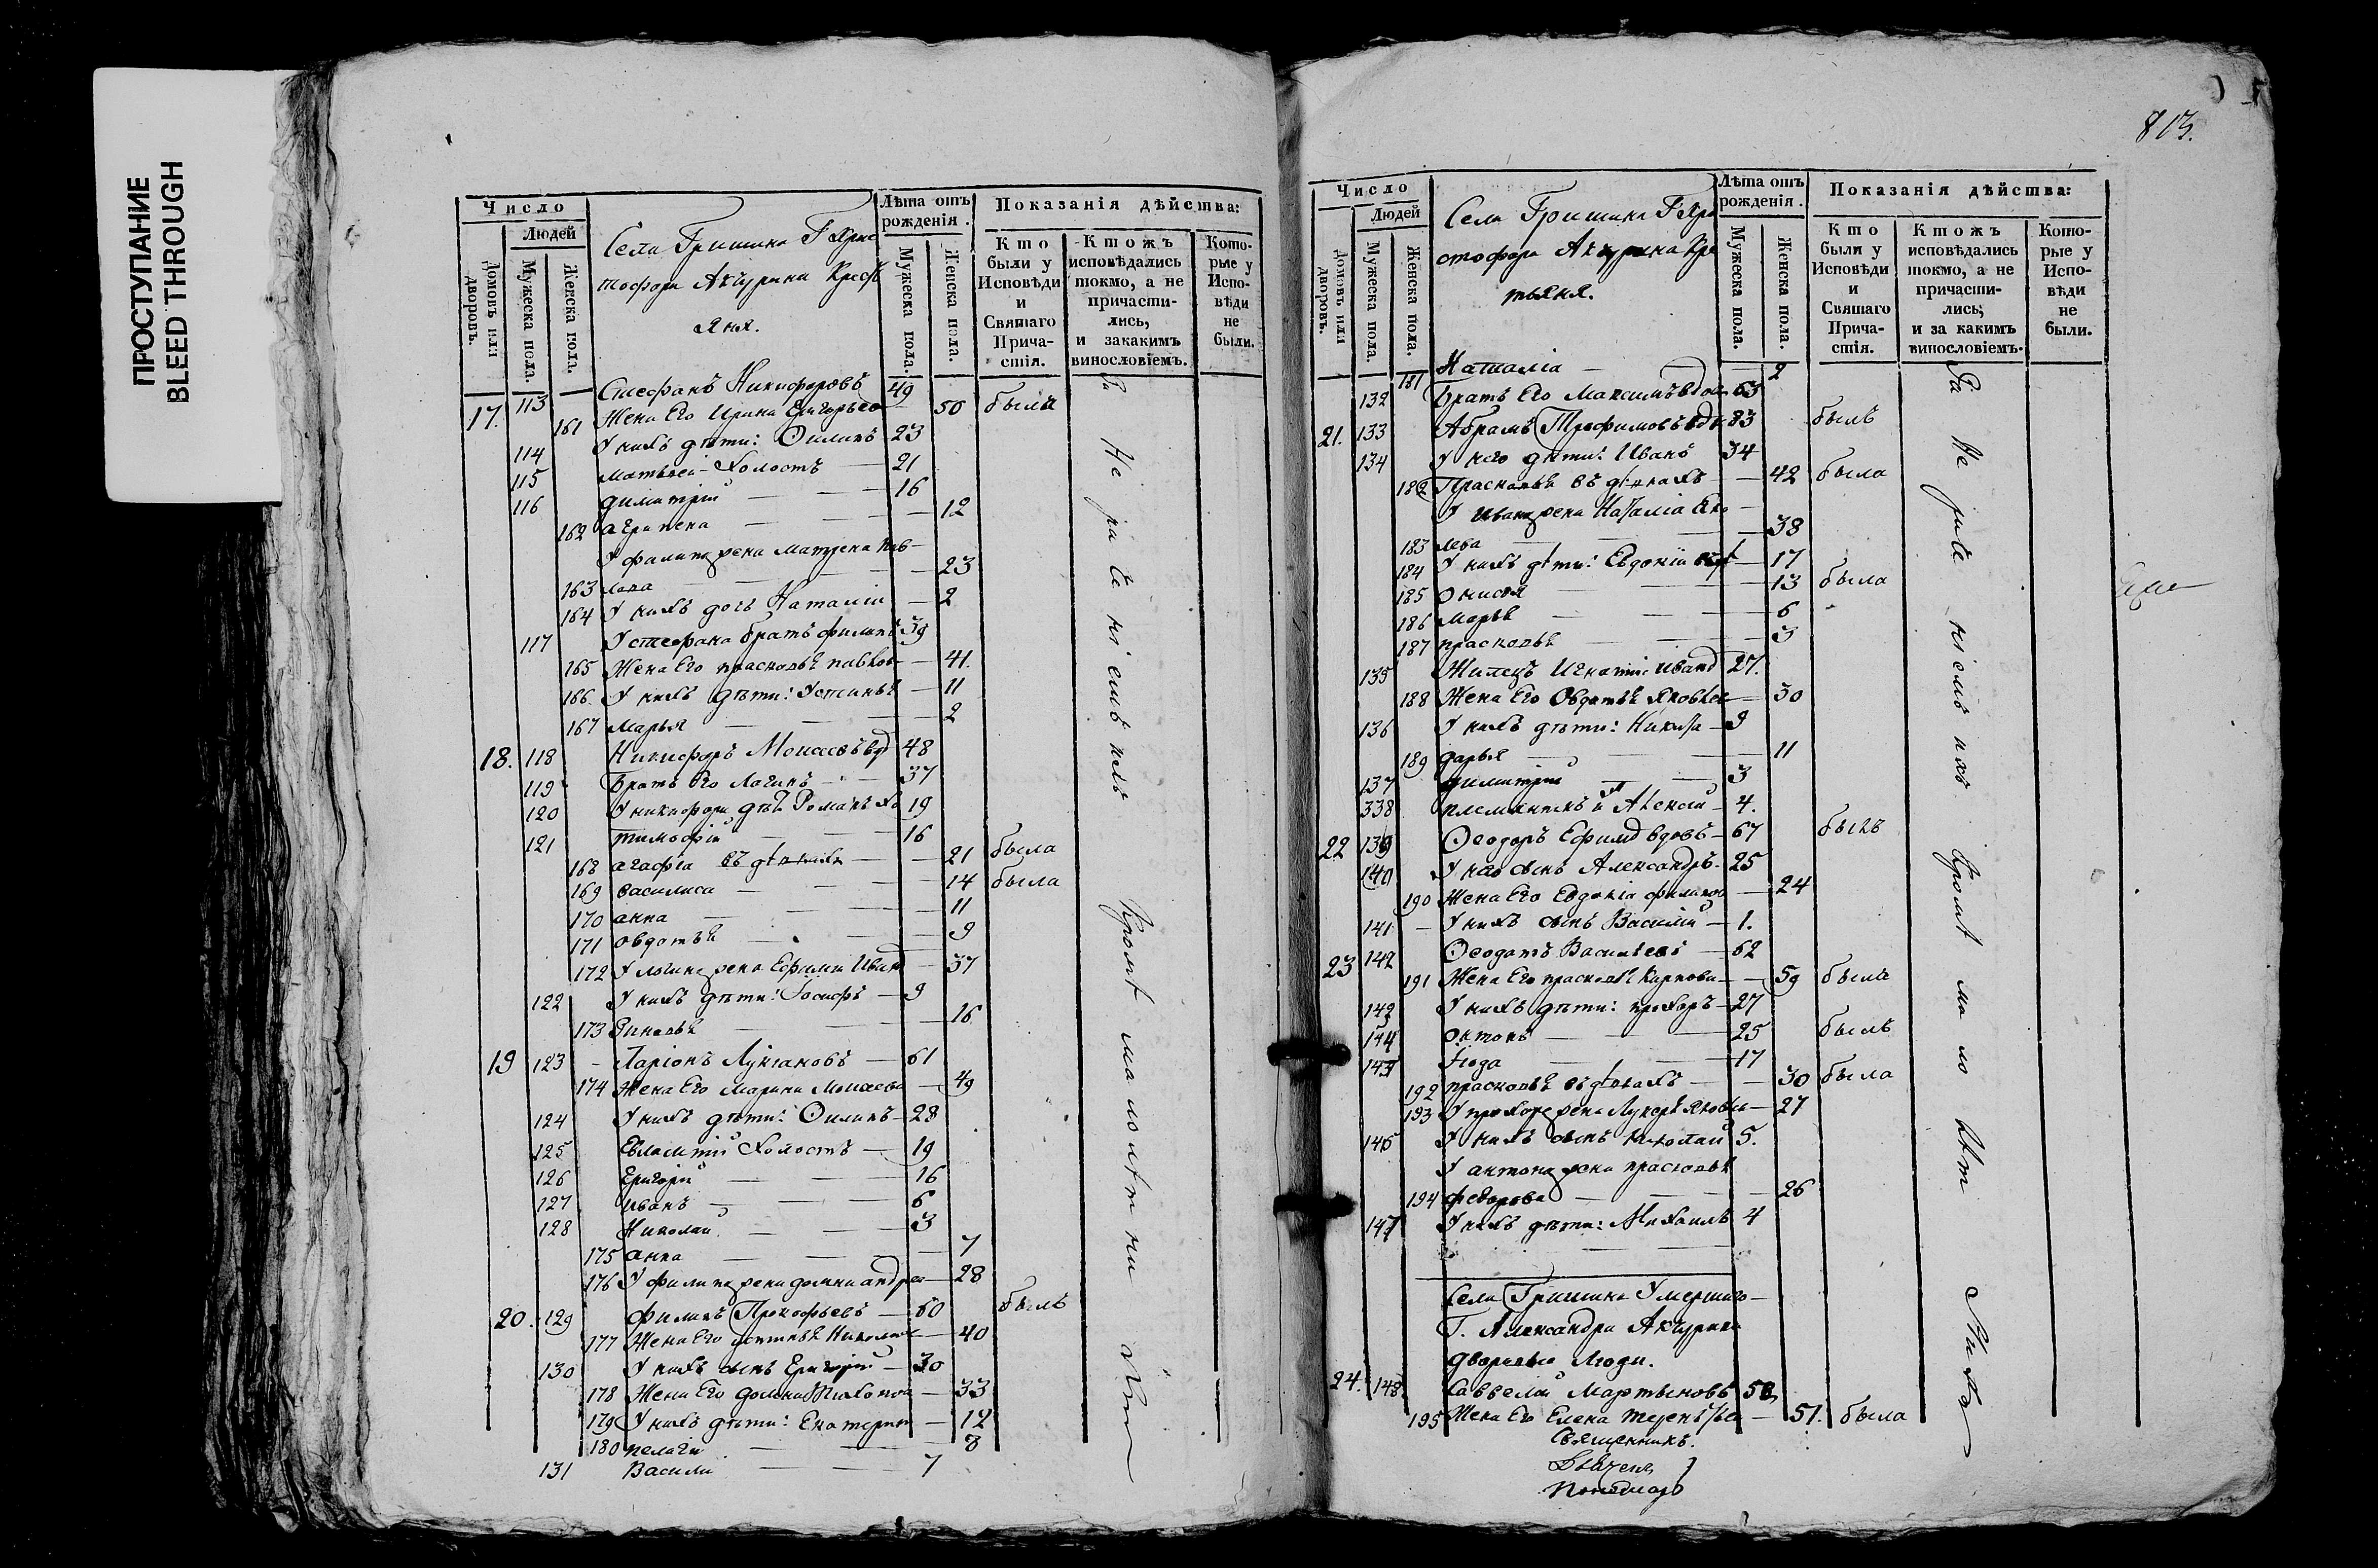 ПРОСТУПАНИЕ
BLEED THROUGH
Число
Людей
Домовъ или дворовъ.
Мужеска пола.
Женска пола.
Села Гришина Г Хрис
тофора Акчурина Кресть
яня.
Лѣта отъ рожденія.
Мужеска пола.
Женска пола.
Показанія дѣйства:
Кто были у Исповѣди и Святаго Причастія.
Ктожъ исповѣдались токмо, а не причастились, и закакимъ винословіемъ.
Которые у Исповѣди не были.
17. 113 Стефанъ Никифоровъ 49
161 Жена Его Ирина Григорьева — 50 была
114 У нихъ дѣти: Филипъ 23
115 матвей — Холостъ — 21
116 димитрій — — 16
162 агрипена — — — 12
У филипа жена матрена пав-
163 лова — — — 23
164 У нихъ дочь Наталія — 2
117 У стефана братъ филипъ 39
165 Жена Его прасковья павлов — 41.
166. У нихъ дѣти: Устинья — 11
167 марья — — — 2
18. 118 Никифоръ Моисеевъ вд 48
119 Братъ Его Логинъ — — 37
120 У никифора дѣти Романъ Хо 19
121 тимофей — — 16
168 агафія въ дѣвкахъ — — 21 была
169 василиса — — — 14 была
170 анна — — — 11
171 овдотья — — — 9
172 У логина жена Ефимия Иван — 37
122 У нихъ дѣти: Іосифъ — 9
173 Зиновья — — — 16
19 123 - Ларіонъ Лукіановъ — 61
174 Жена Его Марина Моисеева — 49
124 У нихъ дѣти: Филипъ — 28
125 Евлампій Холостъ — 19
126 Григорій — — 16
127 иванъ — — 6
128 Николай — — 3
175 анна — — — 7
176 У филипа жена домна андре — 28
20. 129 филипъ Прокофьевъ — 60 былъ
177 Жена Его устинья Никола — 40
130 У нихъ сынъ Григорій — 30
178 Жена Его домна Тихонов — 33
179 У нихъ дѣти: Екатерин — 12
180 пелагія — — — 8
131 Василій — — 7
813.
Число
Людей
Домовъ или дворовъ.
Мужеска пола.
Женска пола.
Села Гришина Г Хри
стофора Акчурина Кре
тьяня.
Лѣта отъ рожденія.
Мужеска пола.
Женска пола.
Показанія дѣйства:
Кто были у Исповѣди и Святаго Причастія.
Ктожъ исповѣдались токмо, а не причастились; и за какимъ винословіемъ.
Которые у Исповѣди не были.
181 Наталія — — 2
132 Братъ Его Максимъ вдов 63
21. 133 Абрамъ Трофимовъ вд 83 былъ
134 У него дѣти: Иванъ 34
182 Прасковья въ дѣвкахъ — 42 была
У ивана жена Наталія Яко —
183 лева — — — 38
184 У нихъ дѣти: Евдокія — 17
185 Онисья — — 13 была
186 марья — — — 6
187 прасковья — — — 3
135 Жилецъ Игнатій иванов 27.
188 Жена Его Овдотья Яковле — 30
136 У нихъ дѣти: Никита — 9
189 дарья — — — 11
137 димитрій — — 3
338 племянникъ Алексей — 4.
22 139 Феодоръ Ефимов вдовъ — 67 былъ
140 У него сынъ Александръ — 25
190 Жена Его Евдокія филипов — 24
141 — У нихъ сынъ Василій — 1.
23 142 Феодотъ Васильевъ — 62
191 Жена Его прасковья Карпова — 59 была
143 У нихъ дѣти: прохоръ — 27
144 Антонъ — — 25 былъ
145 Іюда — — 17
192 прасковья въ дѣвкахъ — — 30 была
193 У прохора жена Лукерья Яковл — 27
146 У нихъ сынъ Николай 5.
У антона жена прасковья
194 федорова — — — 26
147 У нихъ дѣти: Михаилъ 4
Села Гришина Умершаго —
Г. Александра Акчурина
дворовые Люди.
24. 148. Савелей Мартыновъ 58
195 Жена Его Елена терентьев — 51. была
Священникъ.
Пономарь